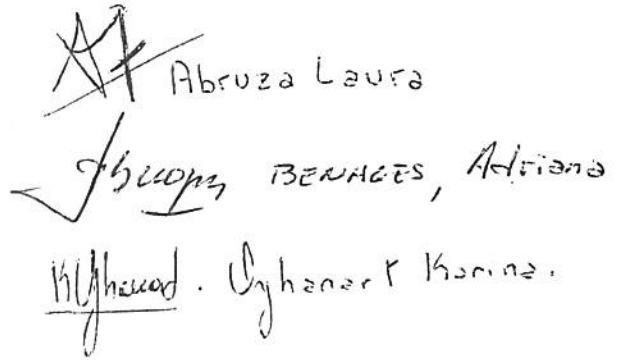 Abruza Laura
BENAGES, Adriana
Oyhanart Karina.